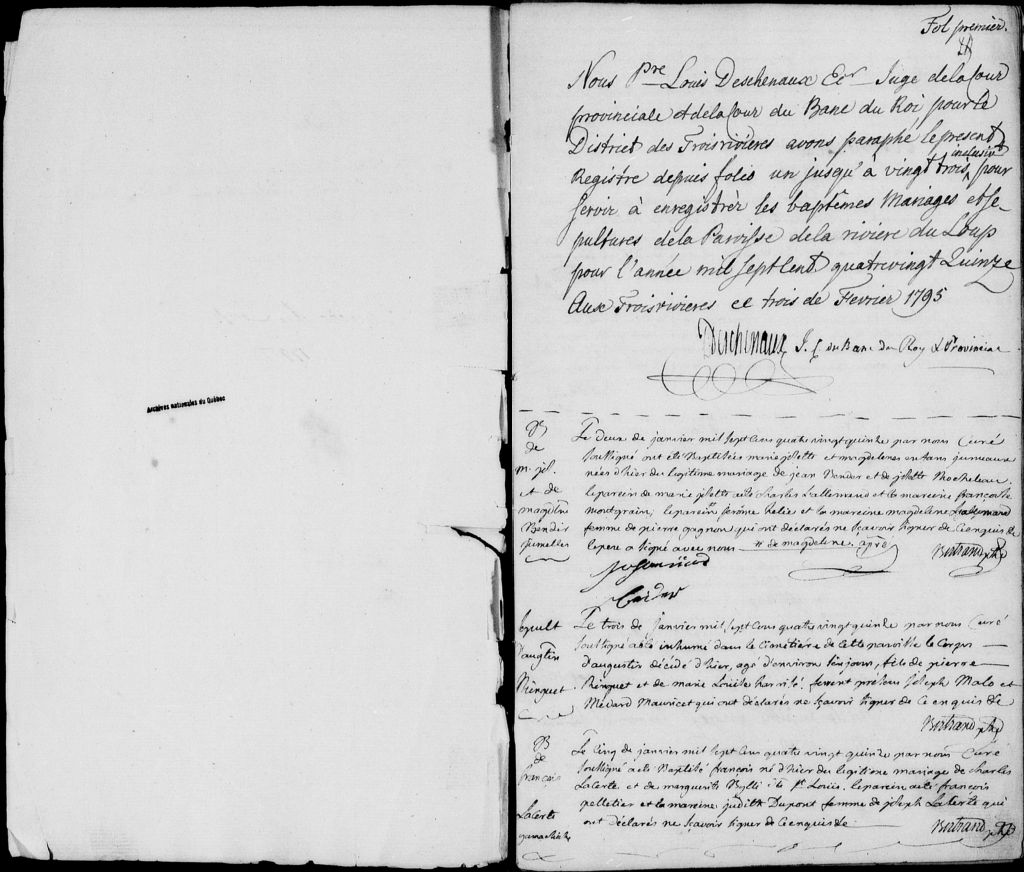 Archives nationales du Québec
Fol premier.
Nous Pre Louis Deschenaux Ecr Juge dela Cour
provinciale et dela Cour du Banc du Roi pour le
District des Troisrivieres avons paraphé le present
inclusiv
Registre depuis folio un jusqu'à vingt trois, pour
servir à enregistrèr les baptêmes Mariages et se-
pultures dela Paroisse dela riviere du Loup
pour l'année mil sept Cent quatrevingt Quinze
Aux Troisrivieres ce trois de Fevrier 1795
Deschenaux J. C du Banc du Roy & Provincial
B
de
m. jos.
et de
magdelne
Bender
jumelles
Le deux de janvier mil sept Cens quatre vingt quinze par nous Curé
soussigné ont étés Baptisées marie josette et magdelene enfans jumeaux
nées d'hier du legitime mariage de jean Bender et de josette Rocheleau
le parein de marie josette a été Charles Lallemand et la mareine françoise
montgrain; le parein jerôme helie et la mareine magdeline Lallemand
femme de pierre gagnon qui ont déclarés ne sçavoir signer de Ce enquis
le pere a signé avec nous # de magdeline. apro
Bertrand ptre
Bender
sepult
d'augtin
Ringuet
Le trois de janvier mil sept Cens quatre vingt quinze par nous Curé
soussigné a été inhumé dans le Cimetière de Cette paroisse le Corps
d'augustin décédé d'hier, agé d'environ six jours, fils de pierre
Ringuet et de marie Louise furent présens joseph Malo et
Médard Mauricet qui ont déclarés ne sçavoir signer de Ce enquis de
Bertrand ptre
B
de
françois
LaCerte
yamachiche
Le Cinq de janvier mil sept Cens quatre vingt quinze par nous Curé
soussigné a été Baptisé françois né d'hier du legitime mariage de Charles
LaCerte et de marguerite le parein a été françois
pelletier et la mareine judith Dupont femme de joseph LaCerte qui
ont déclarés ne sçavoir signer de Ce enquis de
Bertrand ptre